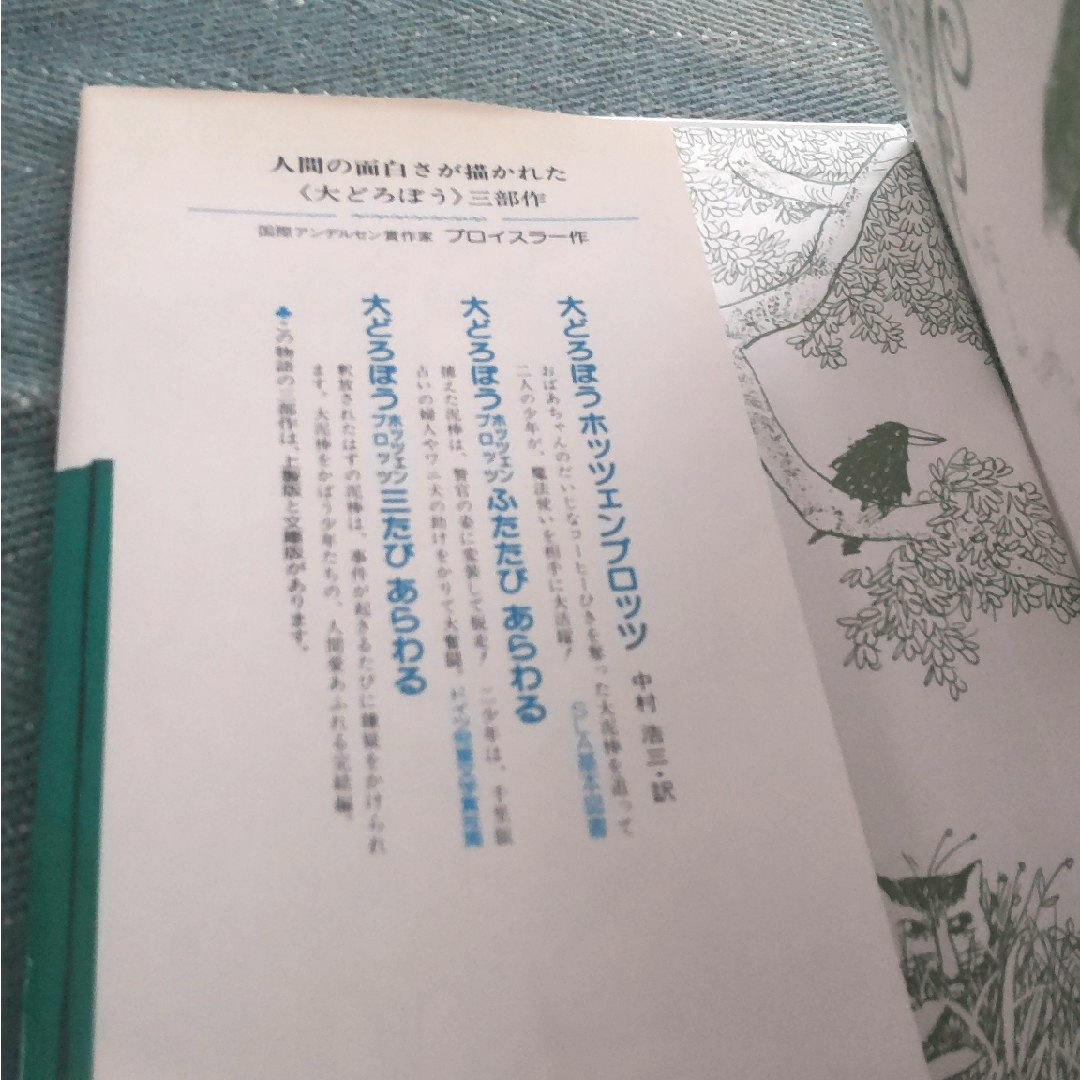 人間の面白さが描かれた
〈大どろぼう〉三部作
国際アンデルセン賞作家 プロイスラー作
大どろぼう ホッツェンプロッツ 中村 浩三・訳
おばあちゃんのだいじなコーヒーひきを奪った大泥棒を追って
二人の少年が、魔法使いを相手に大活躍! SLA基本図書
大どろぼう ホッツェンプロッツ ふたたび あらわる
捕えた泥棒は、警官の姿に変装して脱走! 二少年は、千里眼
占いの婦人やワニ犬の助けをかりて大奮闘。
大どろぼう ホッツェンプロッツ 三たび あらわる
釈放されたはずの泥棒は、事件が起きるたびに嫌疑をかけられ
ます。大泥棒をかばう少年たちの、人間愛あふれる完結編。
◆この物語の三部作は、上製版と文庫版があります。